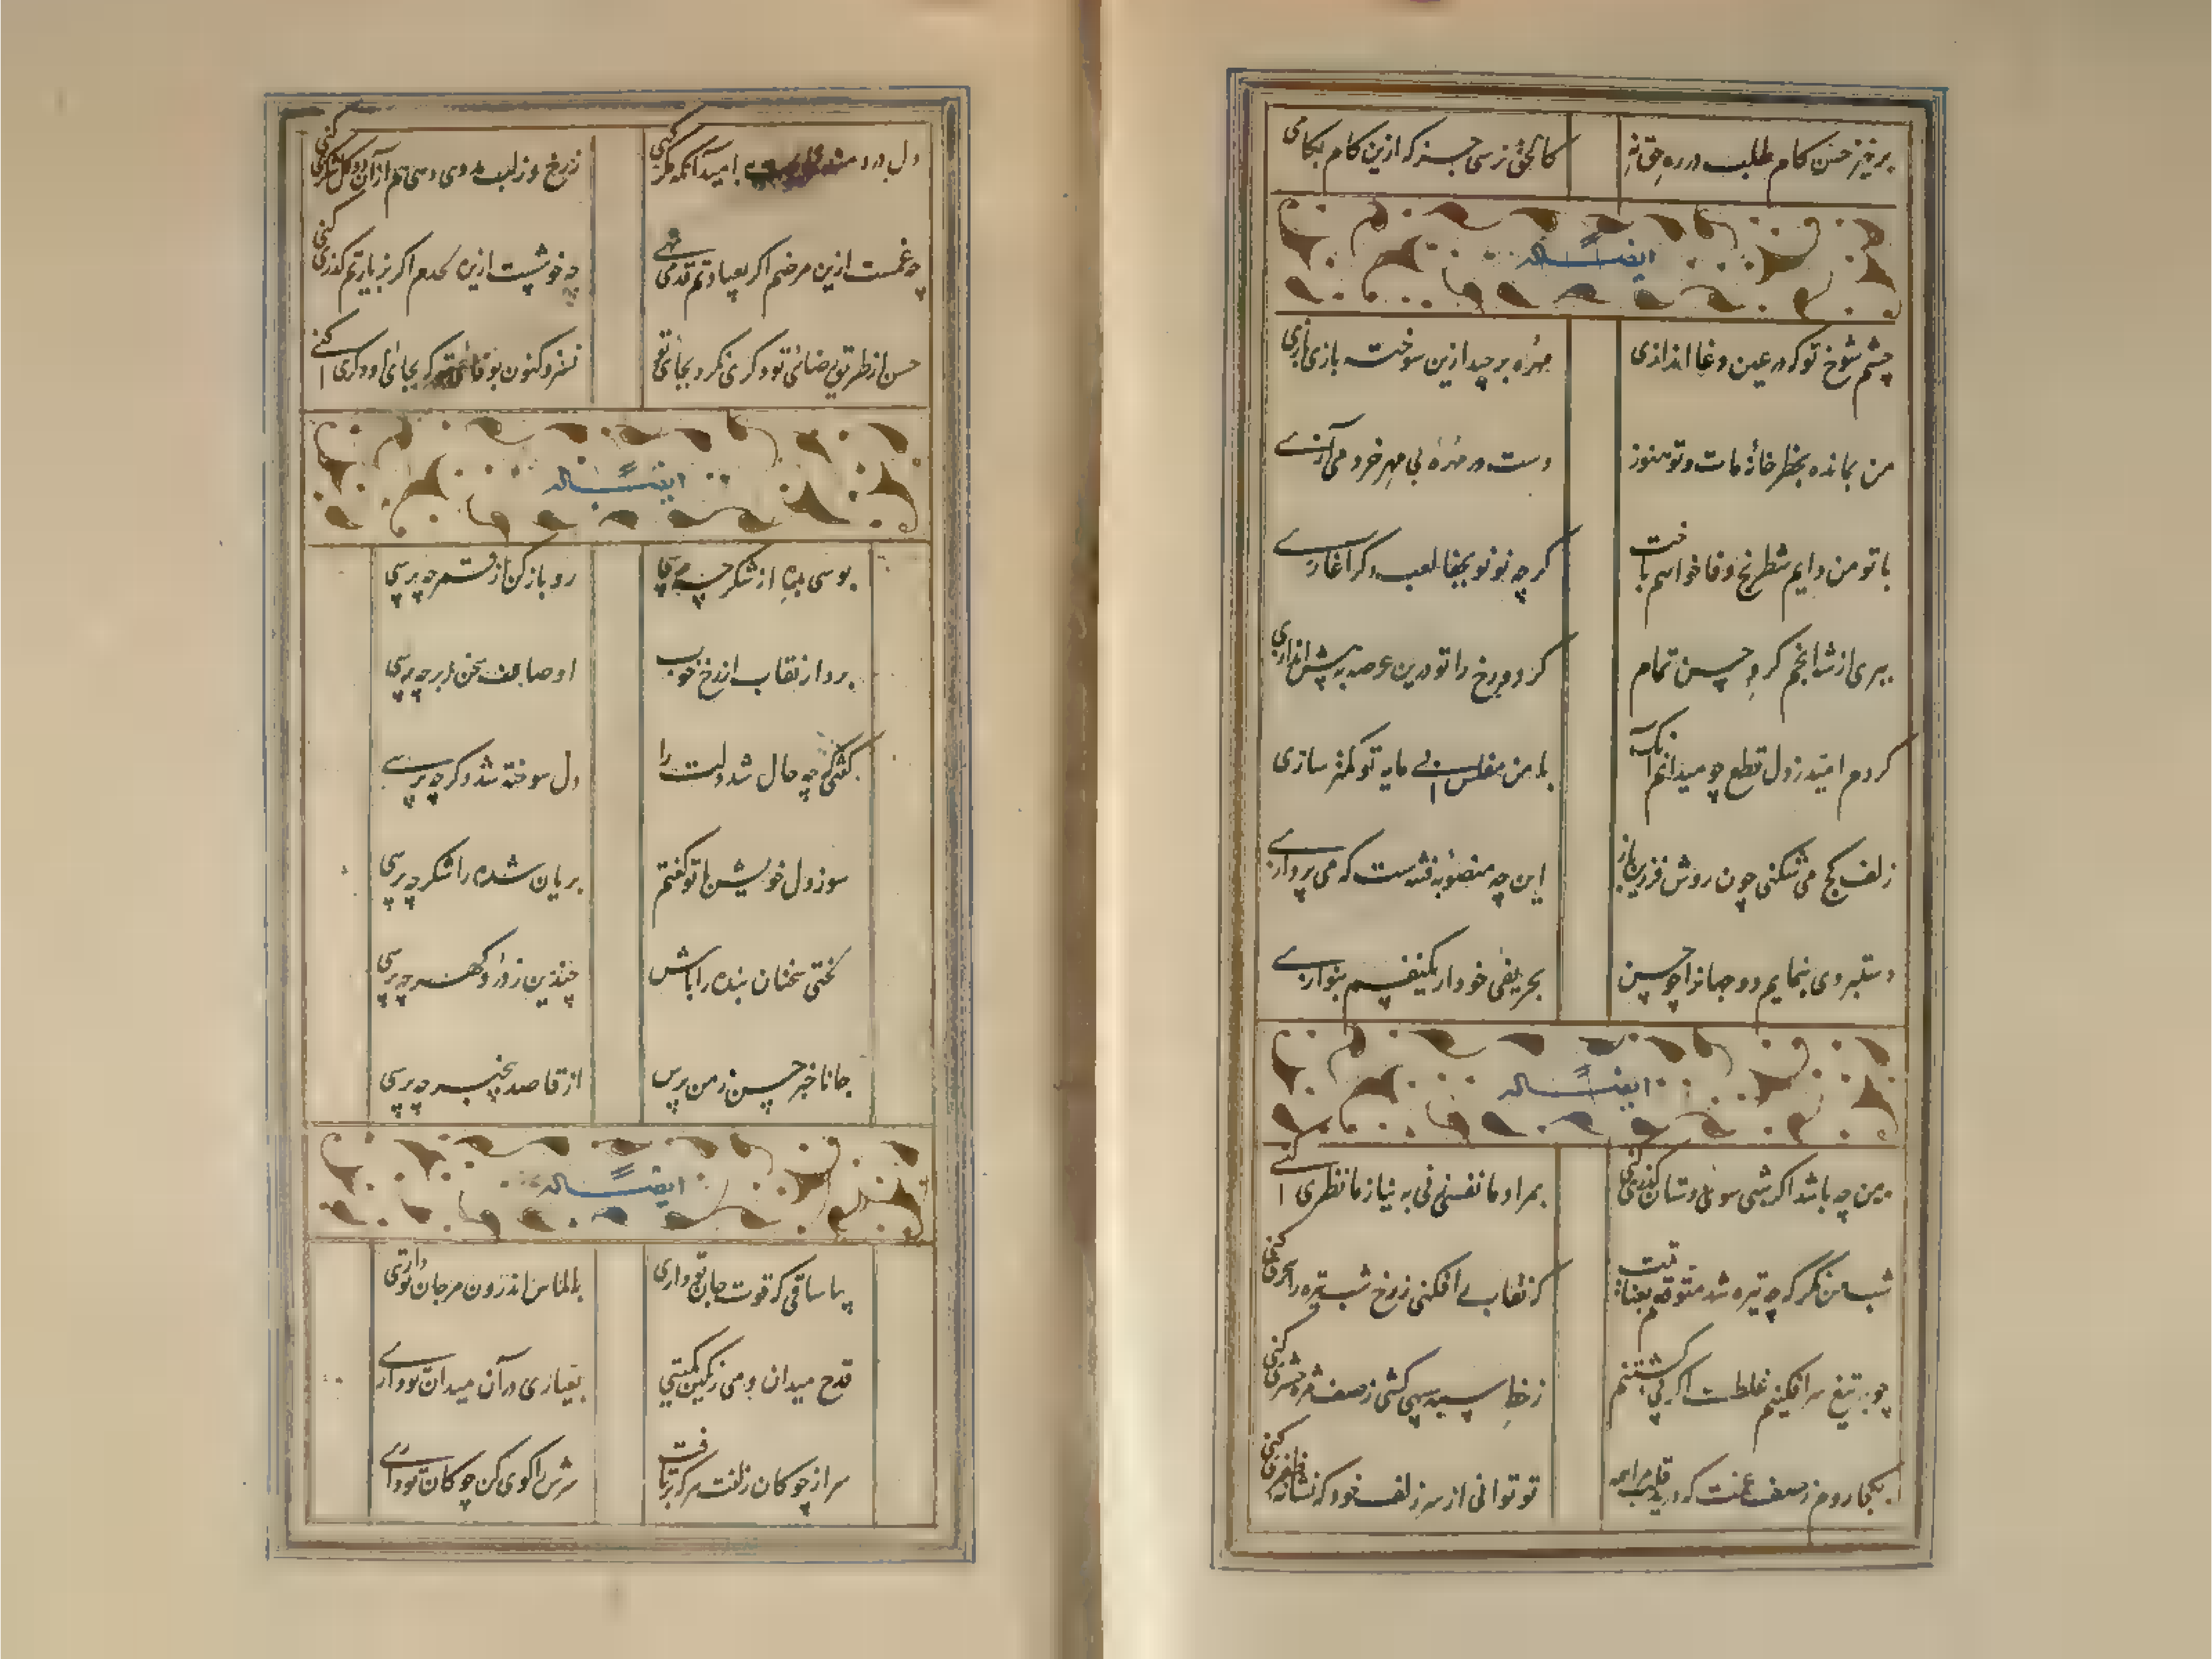 برخیز حسن کام طلب در ره حق نه کالحق نرسی جز که ازین کام بکامی
ایضاً له
چشم شوخ تو که در عین دغا اندازی مهره برچید ازین سوخته بازی بازی
من بمانده بخطر خانهٔ مات و تو هنوز دست در مهرهٔ بی مهر فرو می آری
با تو من دایم شطرنج وفا خواهم باخت گرچه نو نو بجفا لعب دگر آغازی
ببری از شه انجم گرو حسن تمام گر دو رخ را تو درین عرصه به پیش اندازی
کردم امید ز دل قطع چو میدانم آنک با من مفلس بی مایه تو کمتر سازی
زلف کج می شکنی چون روش فرزین باز این چه منصوبه فتنه ست که می پردازی
دستبردی بنمایم دو جهانرا چو حسن بحریفی خود ار یکنفسم بنوازی
ایضاً له
چه باشد اگر شبی سوی دوستان گذری کنی بمراد ما نفسی زنی به نیاز ما نظری کنی
شب من نگر که چه تیره شد متوقعم بعنایتت که نقاب برافکنی ز رخ شب تیره را سحری کنی
چو به تیغ سر افکنیم غلطست اگر پی کشتنم ز خط سیه سپهی کشی ز صف مژه حشری کنی
بکجا روم ز صف غمت که درید قلب مرا همه تو توانی از سر زلف خود که نشانهٔ ظفری کنی
دل دردمند بامید آنکه مگر کنی ز رخ و ز لب دمی دمی هم از آن گل شکری کنی
چه غمست ازین مرضم اگر بعیادتم قدمی نهی چه خوشست ازین لحدم اگر بزیارتم گذری کنی
حسن از طریق رضای تو دگری نکرد بجای تو نسزد کنون بوفای تو که بجای او دگری کنی
ایضاً له
بوسی بده از شکر چه پرسی رو باز کن از قمر چه پرسی
بردار نقاب از رخ خوب اوصاف سخن ز بر چه پرسی
گفتی که چه حال شد دلت را دل سوخته شد دگر چه پرسی
سوز دل خویش با تو گفتم بریان شده را شکر چه پرسی
لختی سخنان بنده را باش چندین ز در و گهر چه پرسی
جانا خبر حسن ز من پرس از قاصد بیخبر چه پرسی
ایضاً له
بیا ساقی که قوت جان تو داری بالماس اندرون مرجان تو داری
قدح میدان و می رنگین کمیتی بعیاری در آن میدان تو داری
سر از چوگان زلفت هر که برتافت سرش را گوی کن چوگان تو داری